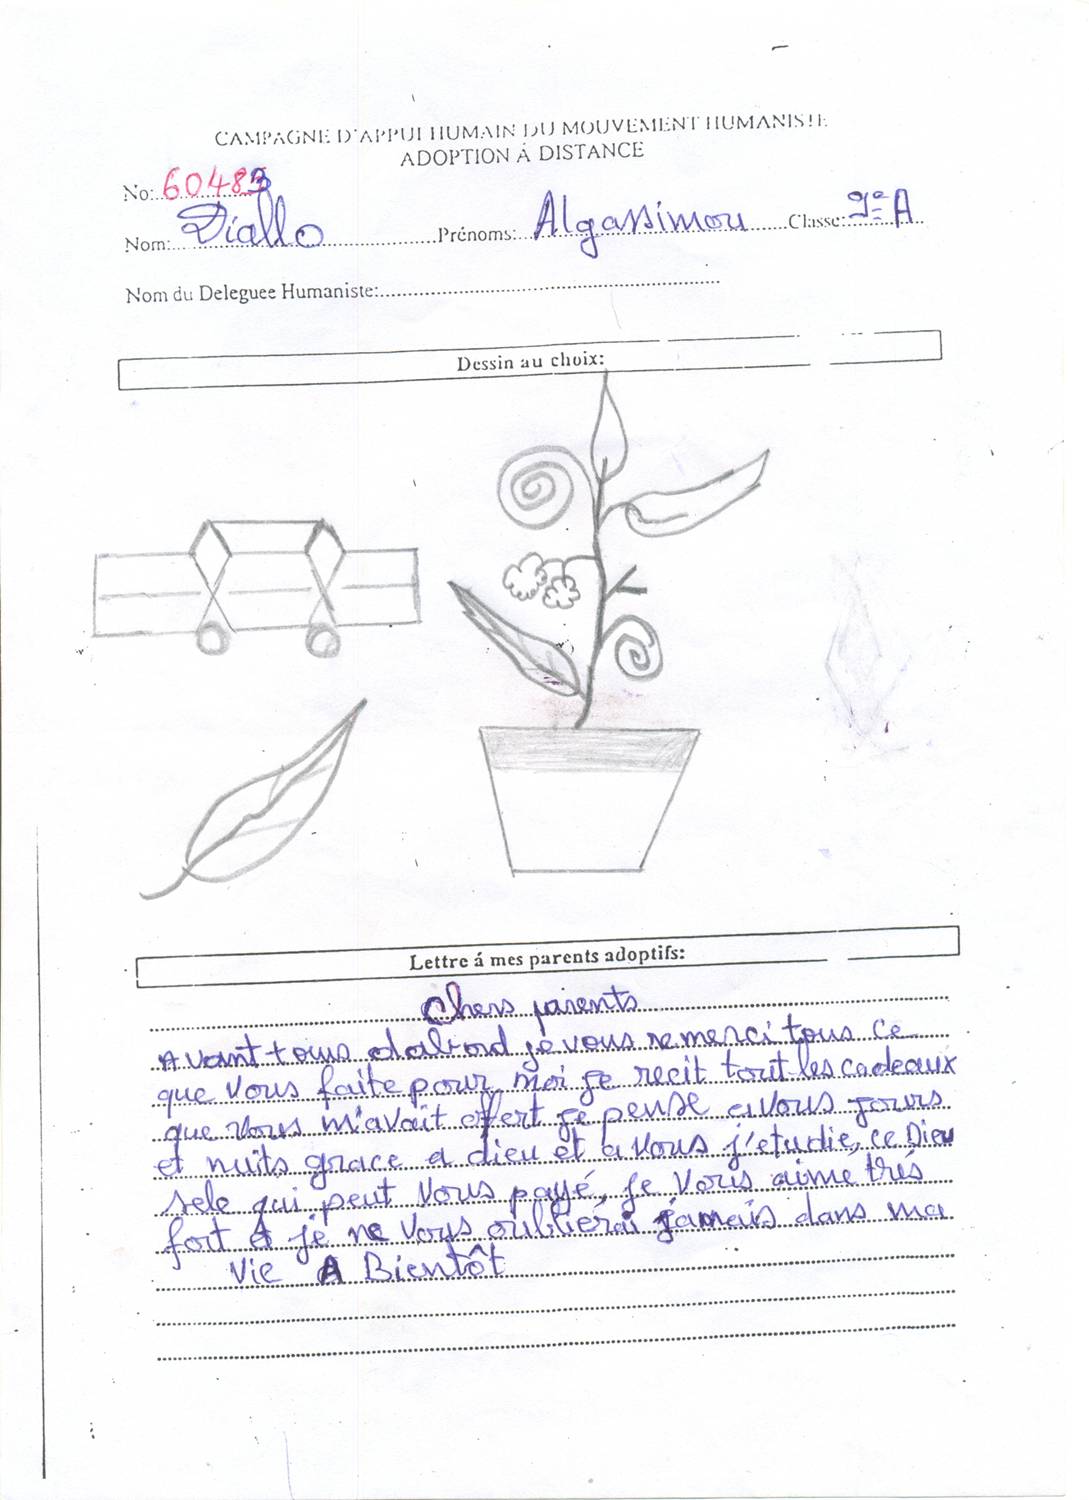 CAMPAGNE D'APPUI HUMAIN DU MOUVEMENT HUMANISTE
ADOPTION Á DISTANCE
No: 60483
Nom: Diallo Prénoms: Algassimou Classe: 9e A
Nom du Deleguee Humaniste:
Dessin au choix:
Lettre á mes parents adoptifs:
Chers parents
Avant tous dabord je vous remerci tous ce
que vous faite pour moi je recit tout les cadeaux
que vous m'avait offert je pense a vous jours
et nuits grace a dieu et a vous j'etudie, ce Dieu
sele qui peut vous payé, je vous aime trés
fort et je ne vous oublierai jamais dans ma
vie A Bientôt